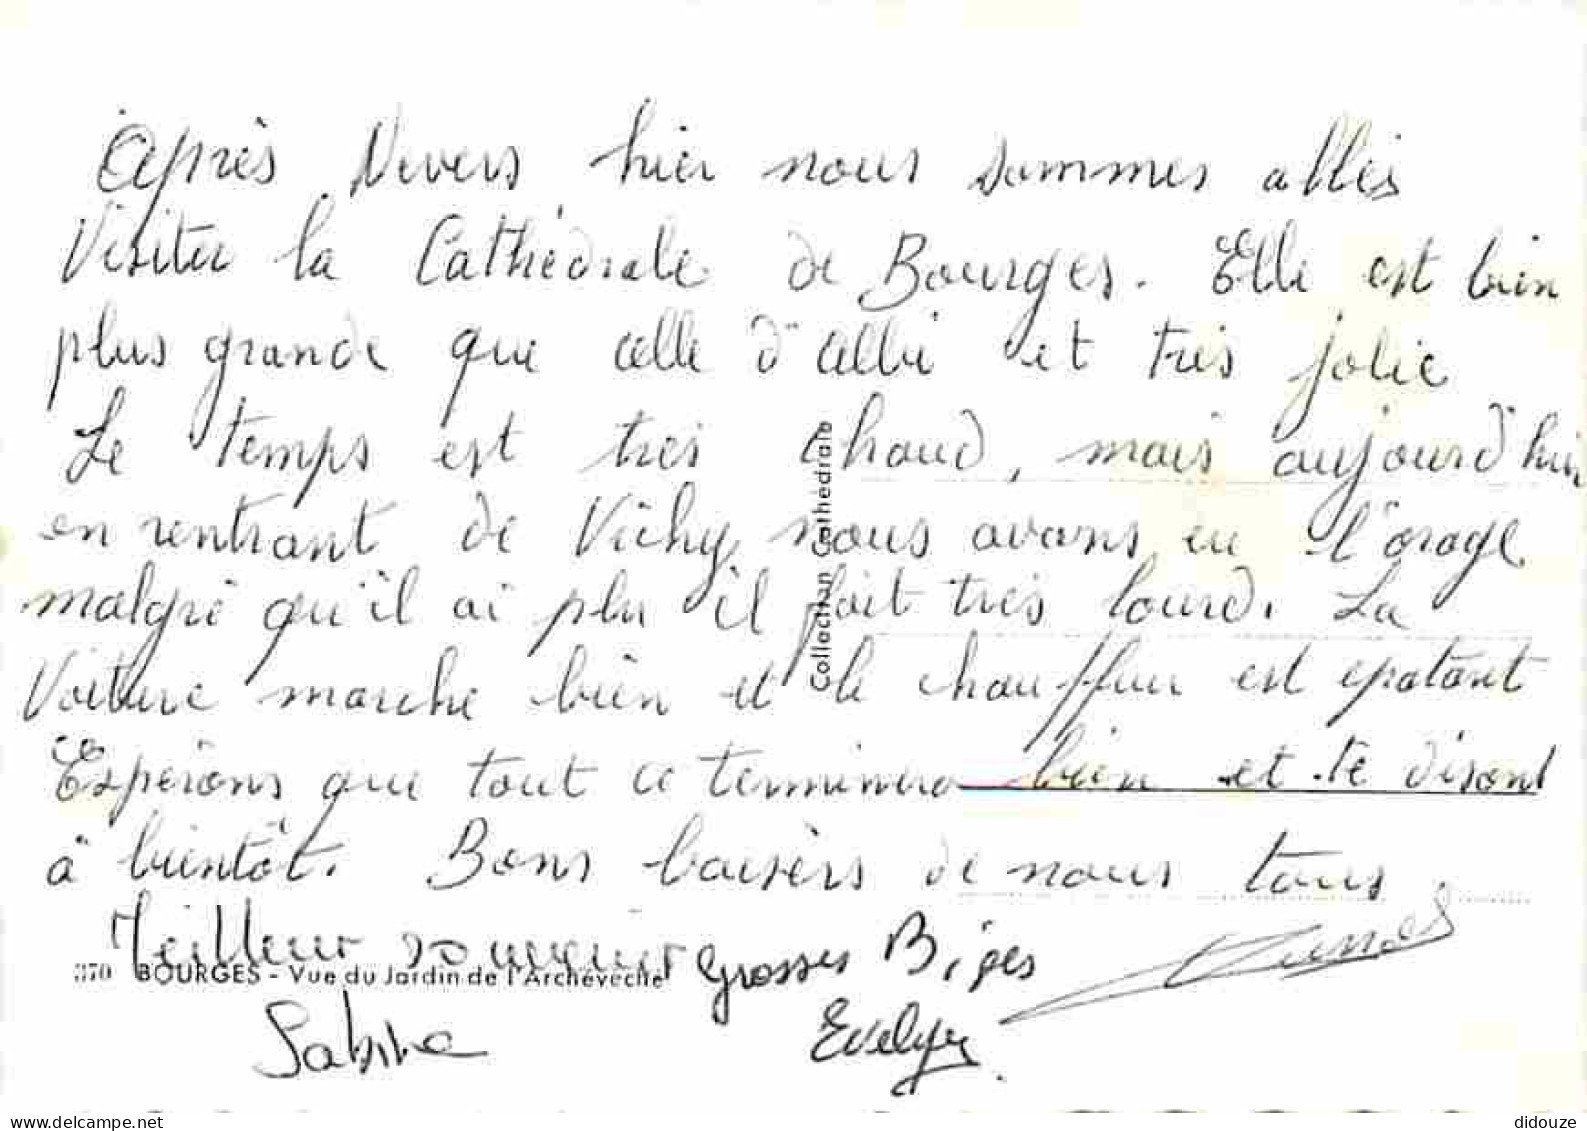 Après Nevers hier nous sommes allés
Visiter la Cathédrale de Bourges. Elle est bien
plus grande que celle d'Albi et très jolie
Le temps est très chaud, mais aujourd'hui
en rentrant de Vichy nous avons eu l'orage
malgré qu'il ai plu il fait très lourd. La
Voiture marche bien et le chauffeur est épatant
Espérons que tout ce terminera bien et te disont
à bientôt. Bons baisers de nous tous.
Meilleur souvenir Grosses Bises
370 BOURGES - Vue du Jardin de l'Archevêché
Sabine Evelyne
Collection Cathedrale
www.delcampe.net
didouze